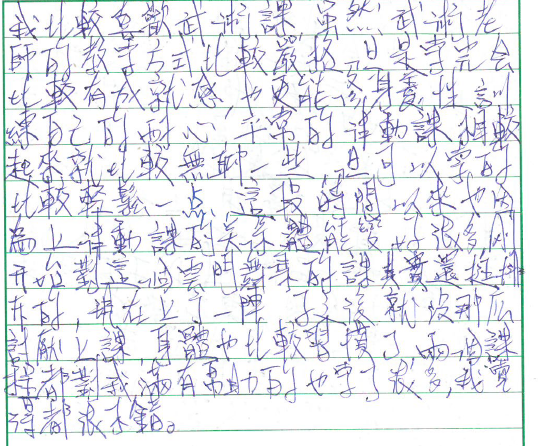 我比較喜歡武術課，虽然武術老
師的教学方式比較嚴格，但是学完会
比較有成就感，也更能修身養性，訓
練自己的耐心，平常的律動課相較
起來就比較無聊一些，但可以学的
比較輕鬆一点，這段時間以來也因
為上律動課的关係體能變好很多，剛
开始對這個要唱歌的課其實蠻排
斥的，現在上了一陣子之後就没那么
討厭上課，身體也比較習慣了，兩個課
程都對我滿有幫助的也学了很多，我覺
得都很不錯。